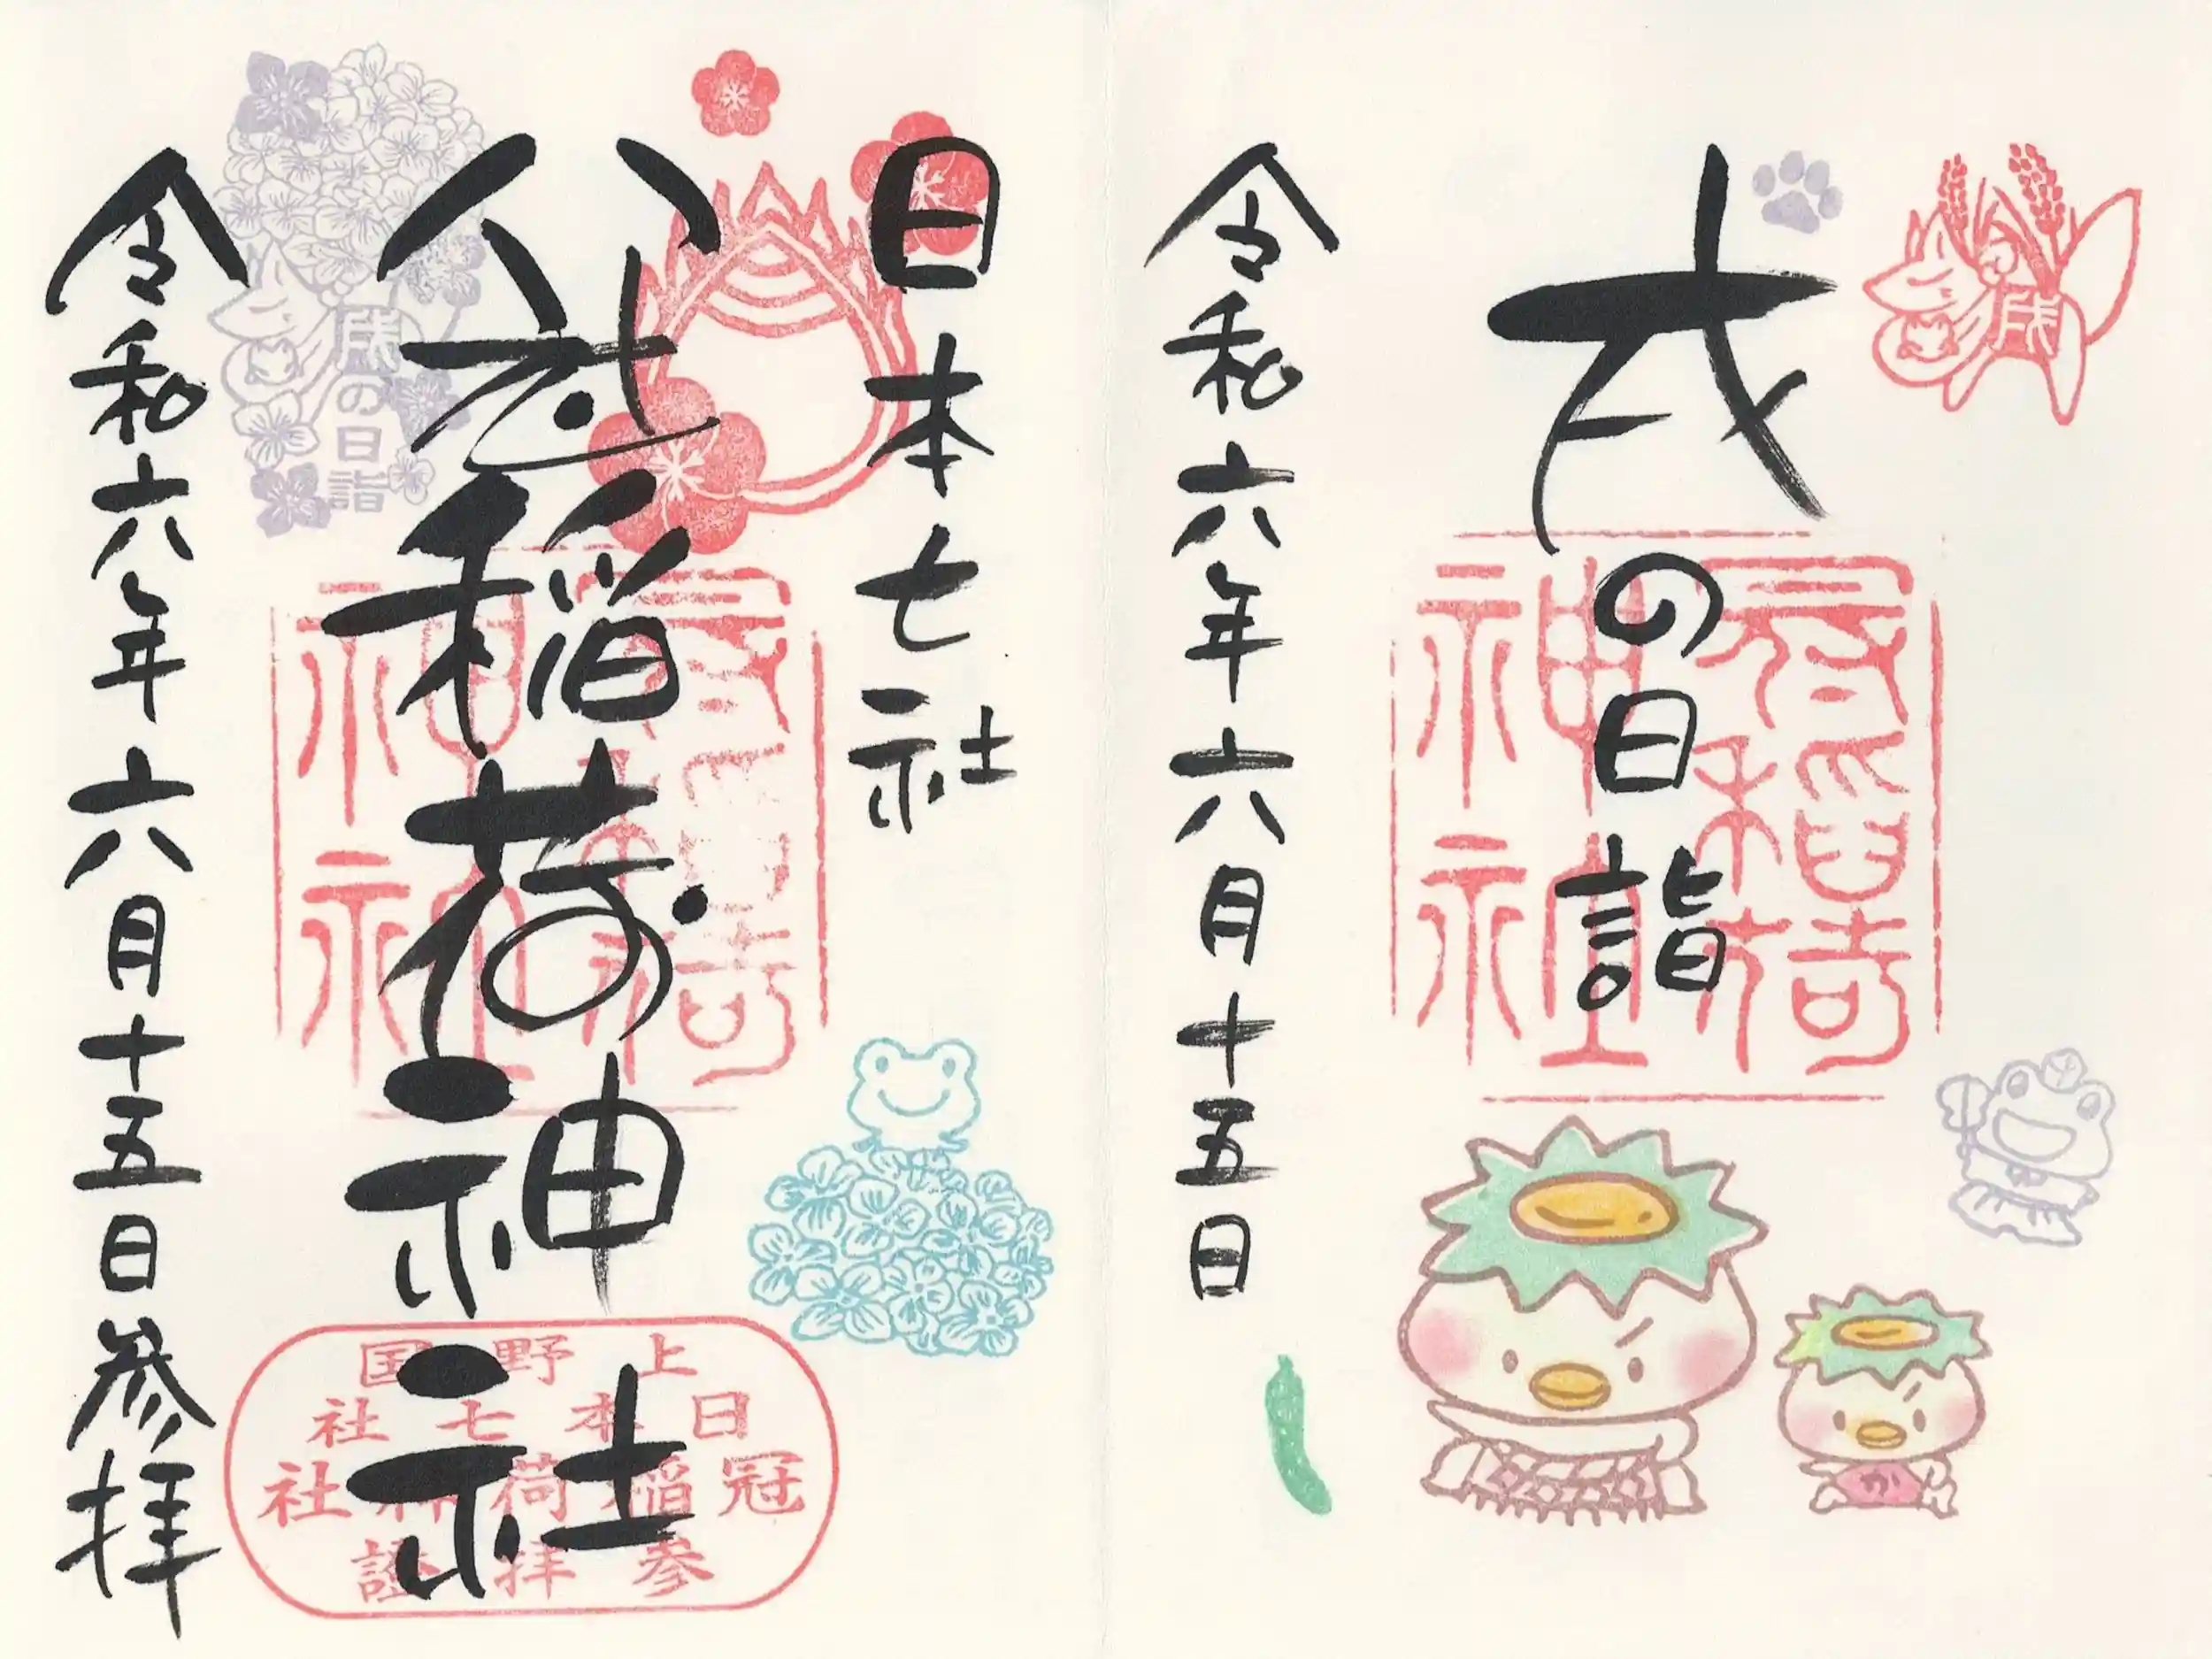 戌
戌の日詣
冠稲荷
神社
令和六年六月十五日
か
日本七社
冠稲荷神社
冠稲荷
神社
戌の日詣
上野国
日本七社
冠稲荷神社
参拝證
令和六年六月十五日参拝